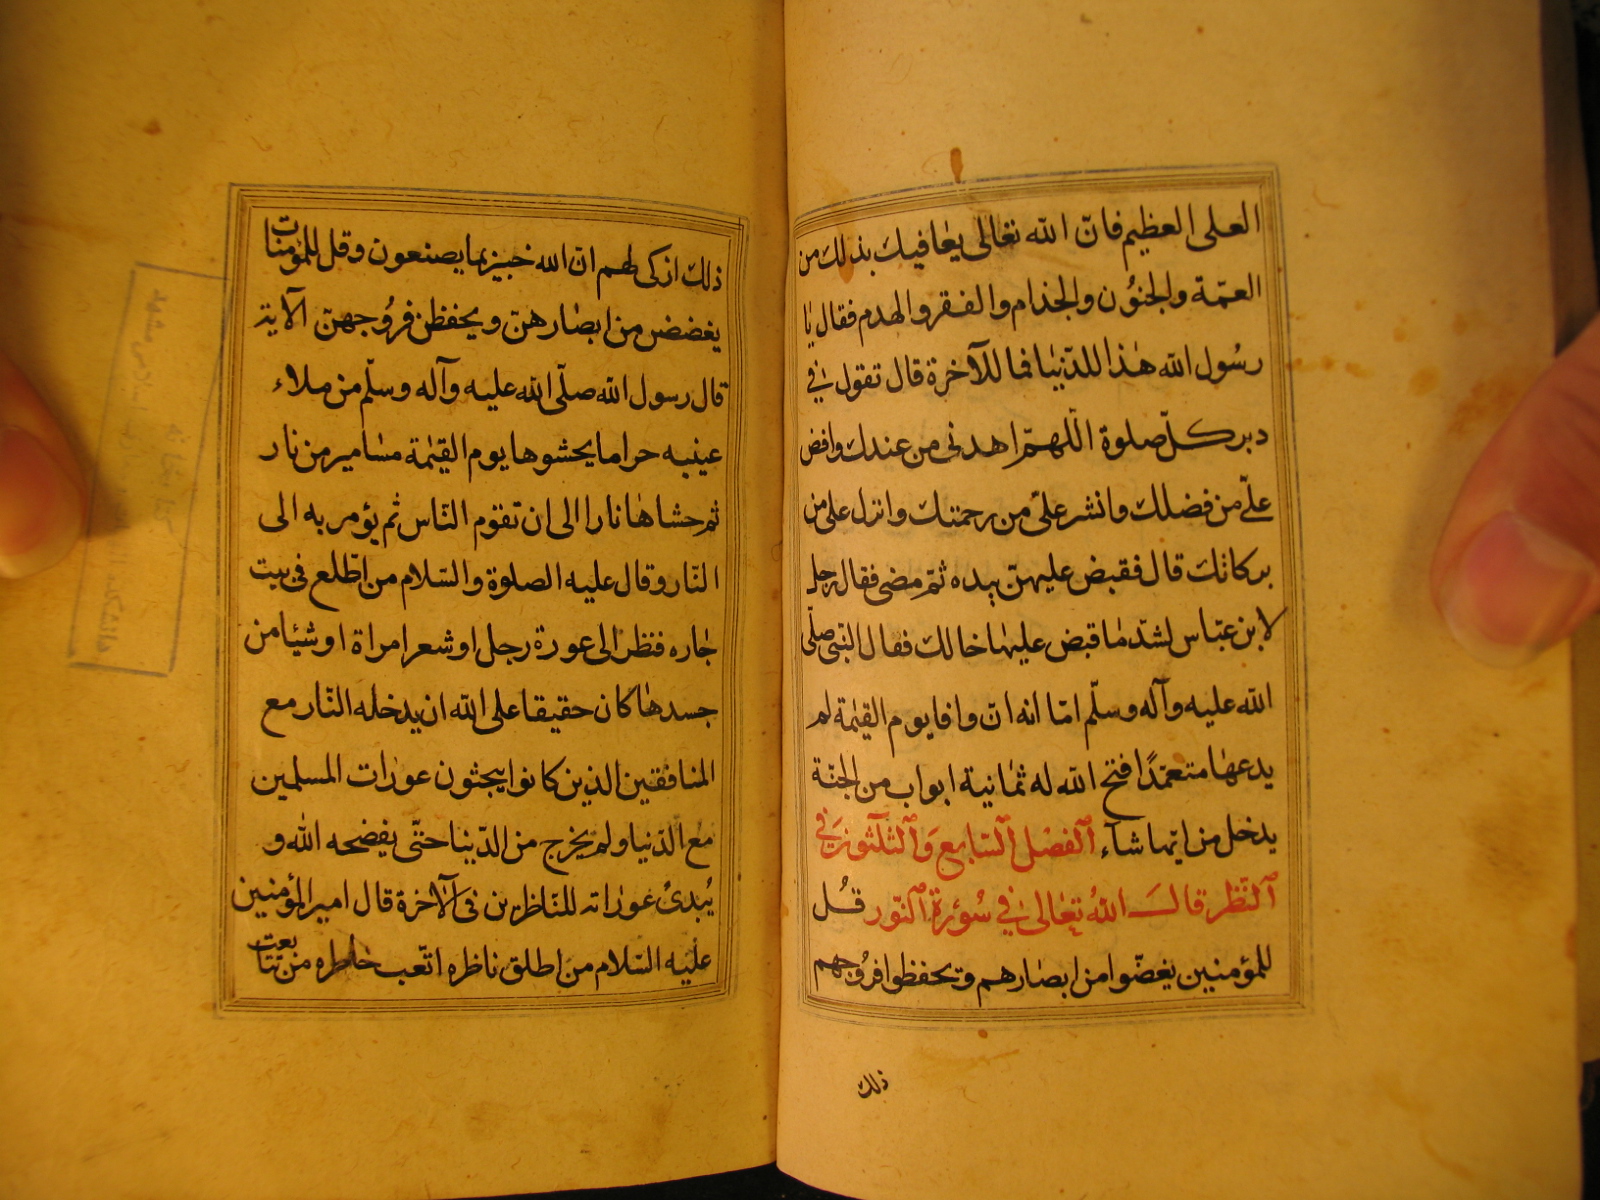 العلى العظيم فانّ الله تعالى يعافيك بذلك من
العمّة والجنُون والجذام والفقر والهدم فقال يا
رسُول الله هٰذا للدّنيا فما للآخرة قال تقول فى
دبر كلّ صلوة اللّهمّ اهدنى من عندك وافض
علىّ من فضلك وانشر علىّ من رحمتك وانزل على من
بركاتك قال فقبض عليهنّ بيده ثمّ مضى فقال رجل
لابن عبّاس لشدّ ما قبض عليها خالك فقال النبى صلّى
الله عليه وآله وسلّم امّا انه ان وافا يوم القيٰمة لم
يدعها متعمّدًا فتح الله له ثمانية ابواب من الجنّة
يدخل من ايّها شآء الفصل السّابع والثلثون فى
النّظر قال الله تعالى فى سُورة النّور قُل
للمؤمنين يغضّوا من ابصارهم ويحفظوا فروُجهم
ذلك
ذلك ازكى لهم انّ الله خبيز بما يصنعون وقل للمُؤمنات
يغضضن من ابصارهنّ ويحفظن فروُجهنّ الآية
قال رسول الله صلّى الله عليه وآله وسلّم من ملاء
عينيه حراما يحشوها يوم القيٰمة مسامير من نار
ثم حشاها نارا الى ان تقوم النّاس ثم يؤمر به الى
النّار وقال عليه الصلوة والسّلام من اطّلع فى بيت
جاره فنظر الى عورة رجل او شعر امراة او شيئا من
جسدها كان حقيقا على الله ان يدخله النّار مع
المنافقين الذين كانوا يبحثون عورات المسلمين
مع الدّنيا ولم يخرج من الدّنيا حتّى يفضحه الله و
يُبدىُ عوراته للنّاظرين فى الآخرة قال امير المؤمنين
عليه السّلام من اطلق ناظره اتّعب خاطره من تتابعت
كتابخانه